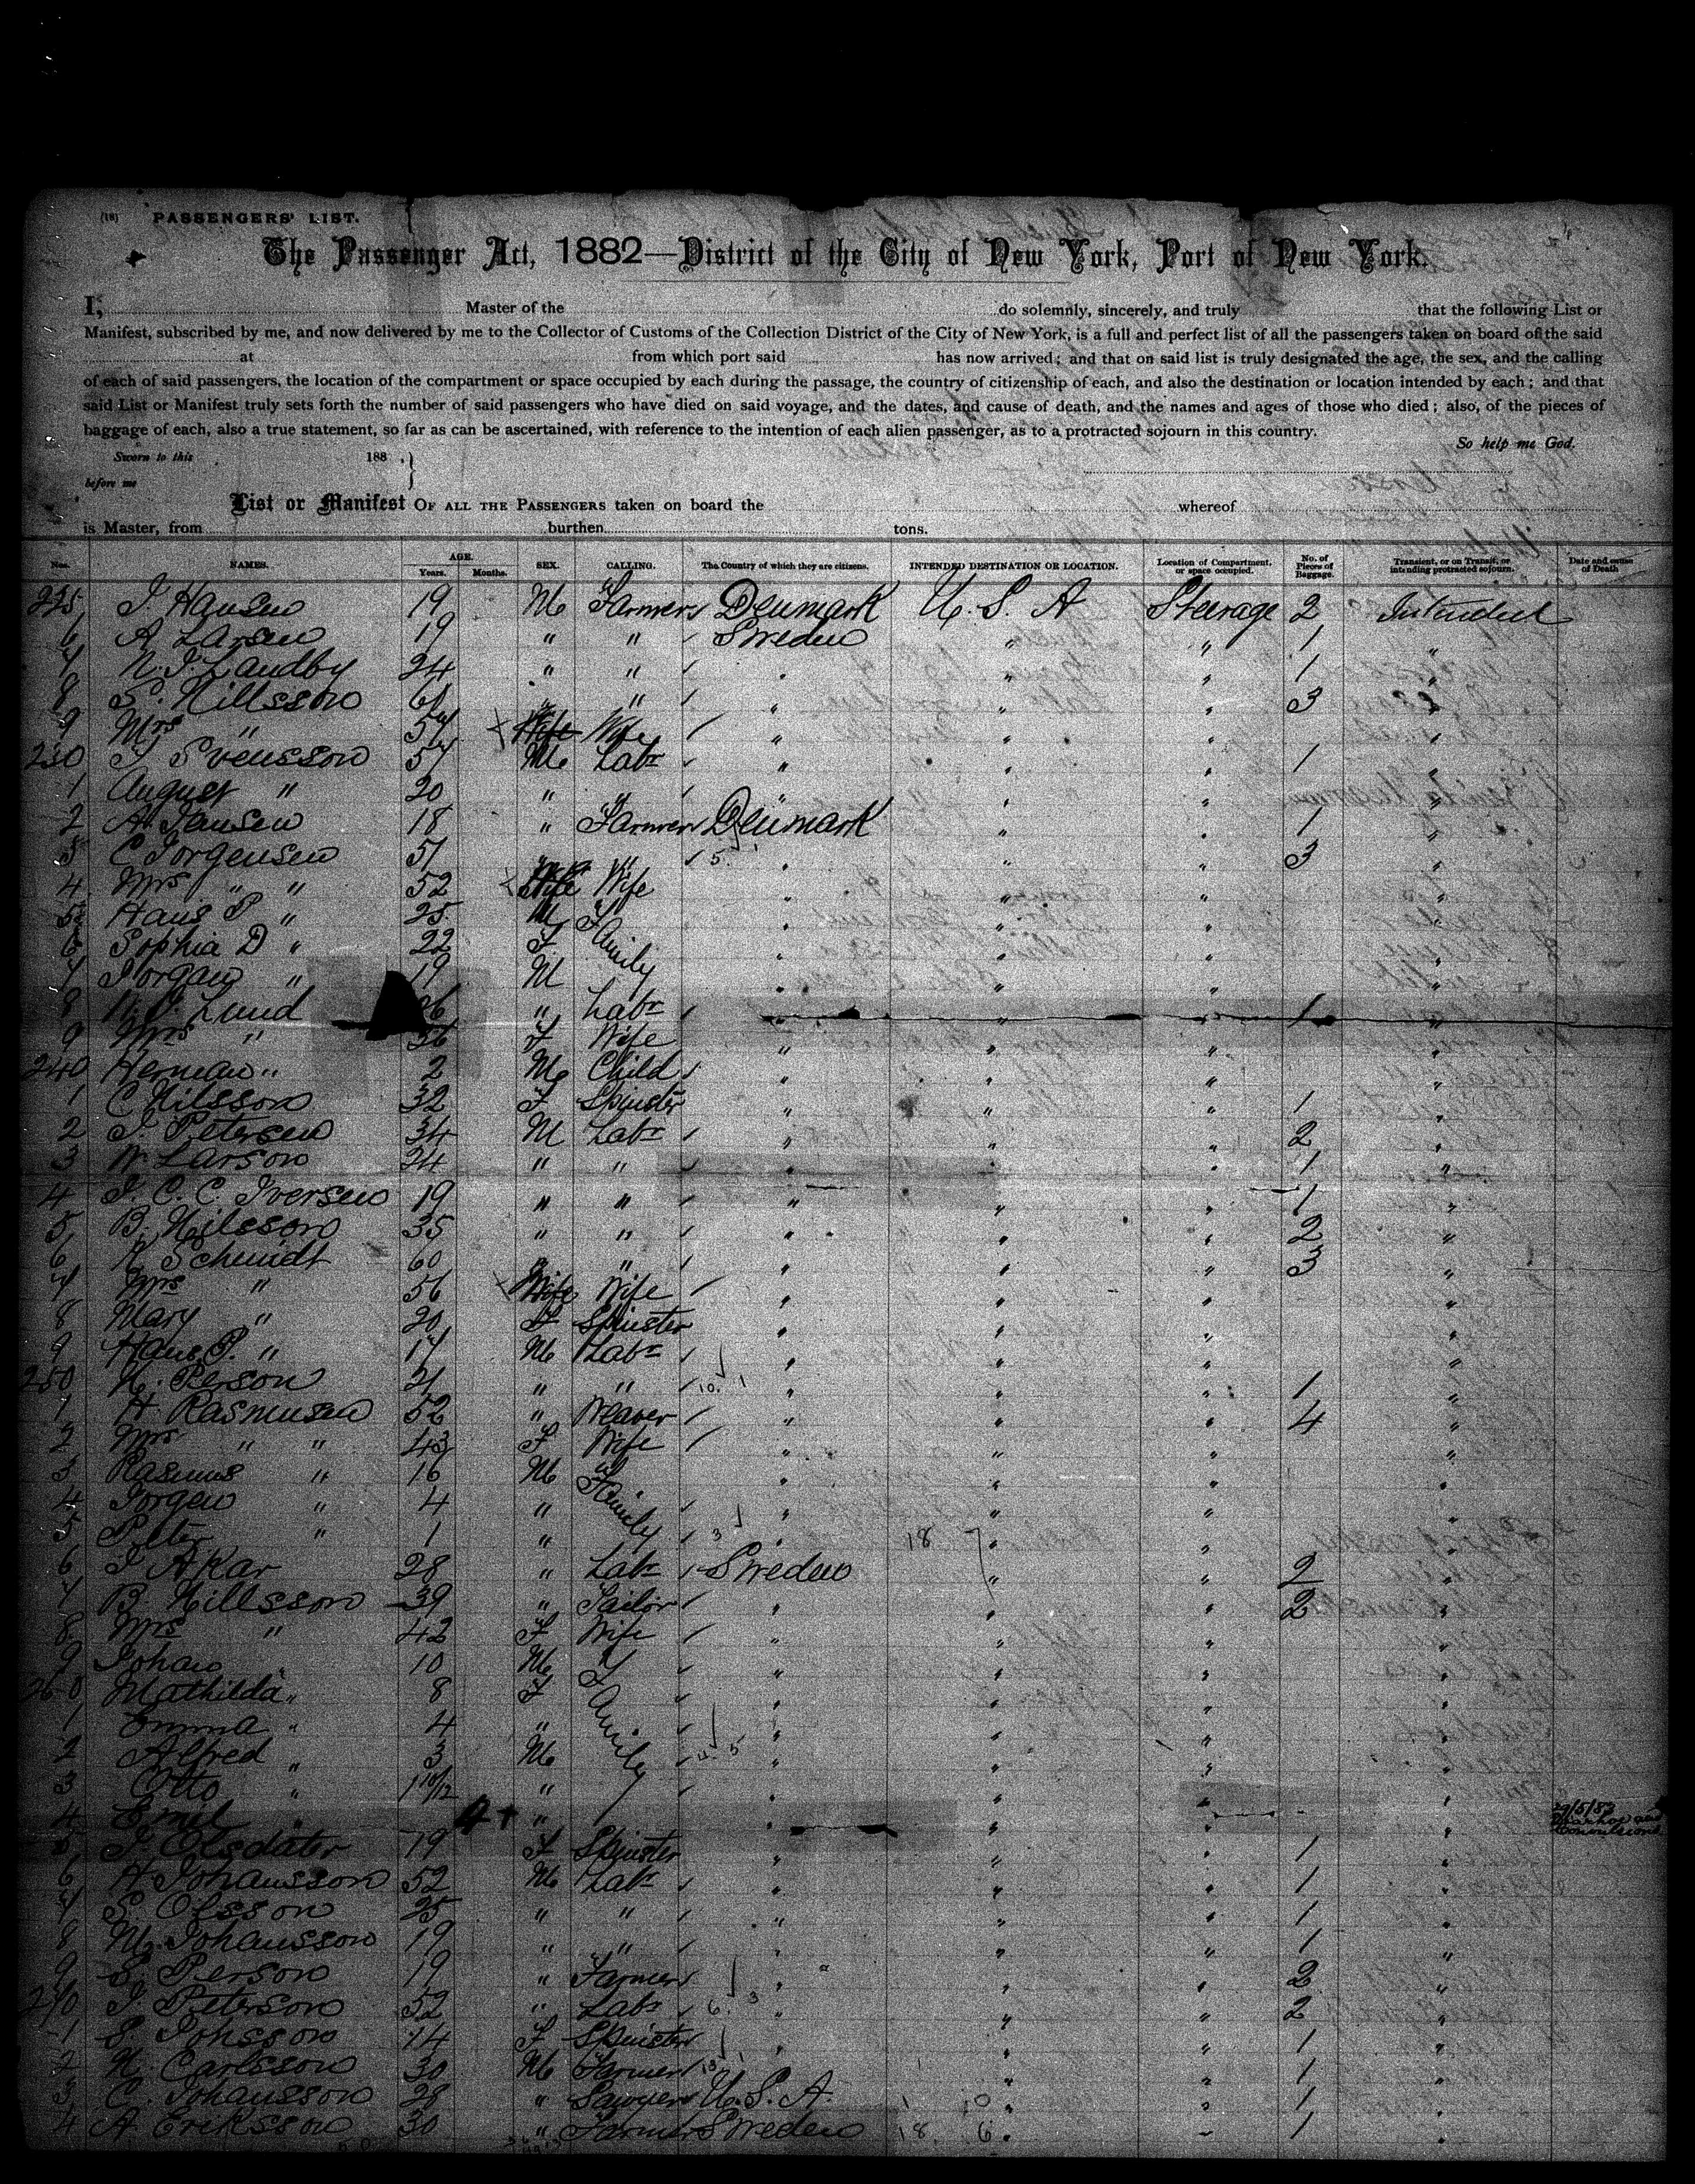 (18) PASSENGERS' LIST.
The Passenger Act, 1882—District of the City of New York, Port of New York.
I, Master of the do solemnly, sincerely, and truly that the following List or
Manifest, subscribed by me, and now delivered by me to the Collector of Customs of the Collection District of the City of New York, is a full and perfect list of all the passengers taken on board of the said
at from which port said has now arrived; and that on said list is truly designated the age, the sex, and the calling
of each of said passengers, the location of the compartment or space occupied by each during the passage, the country of citizenship of each, and also the destination or location intended by each; and that
said List or Manifest truly sets forth the number of said passengers who have died on said voyage, and the dates, and cause of death, and the names and ages of those who died; also, of the pieces of
baggage of each, also a true statement, so far as can be ascertained, with reference to the intention of each alien passenger, as to a protracted sojourn in this country.
So help me God.
Sworn to this 188 .
before me
List or Manifest OF ALL THE PASSENGERS taken on board the whereof
is Master, from burthen tons.
Nos. NAMES. AGE. Years. Months. SEX. CALLING. The Country of which they are citizens. INTENDED DESTINATION OR LOCATION. Location of Compartment, or space occupied. No. of Pieces of Baggage. Transient, or on Transit, or intending protracted sojourn. Date and cause of Death
225 J. Hansen 19 M Farmer Denmark U.S.A Steerage 2 Intended
6 A Larsen 19 " " Sweden " " 1 "
7 N. J. Landby 24 " " " " " 1 "
8 S. Nillsson 61 " " " " " 3 "
9 Mrs " 57 Wife Wife " " " "
230 J Svensson 57 M Labr " " " 1 "
1 August " 20 " " " " " "
2 A Jansen 18 " Farmer Denmark " " 1 "
3 C Jorgensen 51 " " " " " 3 "
4 Mrs " " 52 Wife Wife " " " "
5 Hans P " 25 M Family " " " "
6 Sophia D " 22 F " " " "
7 Jorgan " 19 M " " " "
8 Lund 26 " Labr " " " 1 "
9 Mrs " 26 F Wife " " " "
240 Herman " 2 M Child " " " "
1 C Nilsson 32 F Spinster " " " 1 "
2 J. Petersen 34 M Labr " " " 2 "
3 N Larson 24 " " " " " 1 "
4 J. C. C. Iversen 19 " " " " " 1 "
5 B. Nilsson 35 " " " " " 2 "
6 Schmidt 60 " " " " " 3 "
7 Mrs " 56 Wife Wife " " " "
8 Mary " 20 F Spinster " " " "
9 Hans P. " 17 M Labr " " " "
250 N. Person 21 " " " " " 1 "
1 H Rasmusen 52 " Weaver " " " 4 "
2 Mrs " " 43 F Wife " " " "
3 Rasmus " 16 M Family " " " "
4 Jorgen " 4 " " " " "
5 Peter " 1 " " " " "
6 J Akar 28 " Labr Sweden " " 2 "
7 B. Nillsson 39 " Tailor " " " 2 "
8 Mrs " 42 F Wife " " " "
9 Johan " 10 M Family " " " "
260 Mathilda " 8 F " " " "
1 Emma " 4 " " " " "
2 Alfred " 3 M " " " "
3 Otto " 1 10/12 " " " " "
4 Emil " " " " " " 29/5/8
5 J Olsdater 19 F Spinster " " " 1 "
6 H Johansson 52 M Labr " " " 1 "
7 S. Olsson 25 " " " " " 1 "
8 M. Johansson 19 " " " " " 1 "
9 S Person 19 " Farmer " " " 2 "
270 J. Peterson 52 " Labr " " " 2 "
1 S. Johsson 14 F Spinster " " " 1 "
2 N. Carlsson 30 M Farmer " " " 1 "
3 C. Johansson 28 " Sawyer U. S. A. " " 1 "
4 A Eriksson 30 " Farmer Sweden " " 1 "